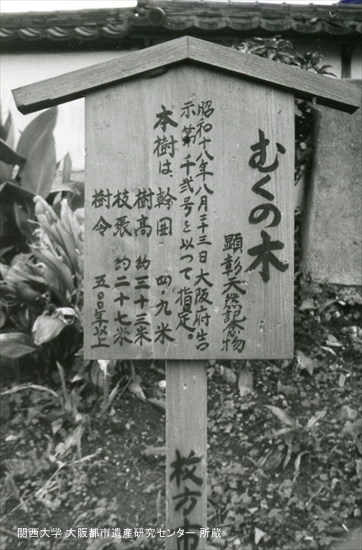 むくの木
顕彰天然記念物
昭和十八年八月二十三日大阪府告
示第千弐号を以つて指定。
本樹は、幹囲 四、九米
樹高 約二十三米
枝張 約二十七米
樹令 五〇〇年以上
枚方
関西大学 大阪都市遺産研究センター 所蔵